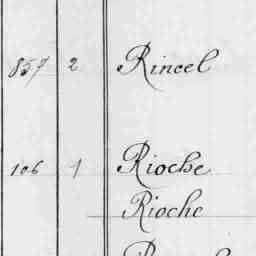 857 2 Rincel
106 1 Rioche
Rioche